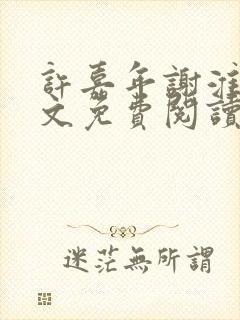 許嘉年謝淮
文免費閱讀
迷茫無所謂